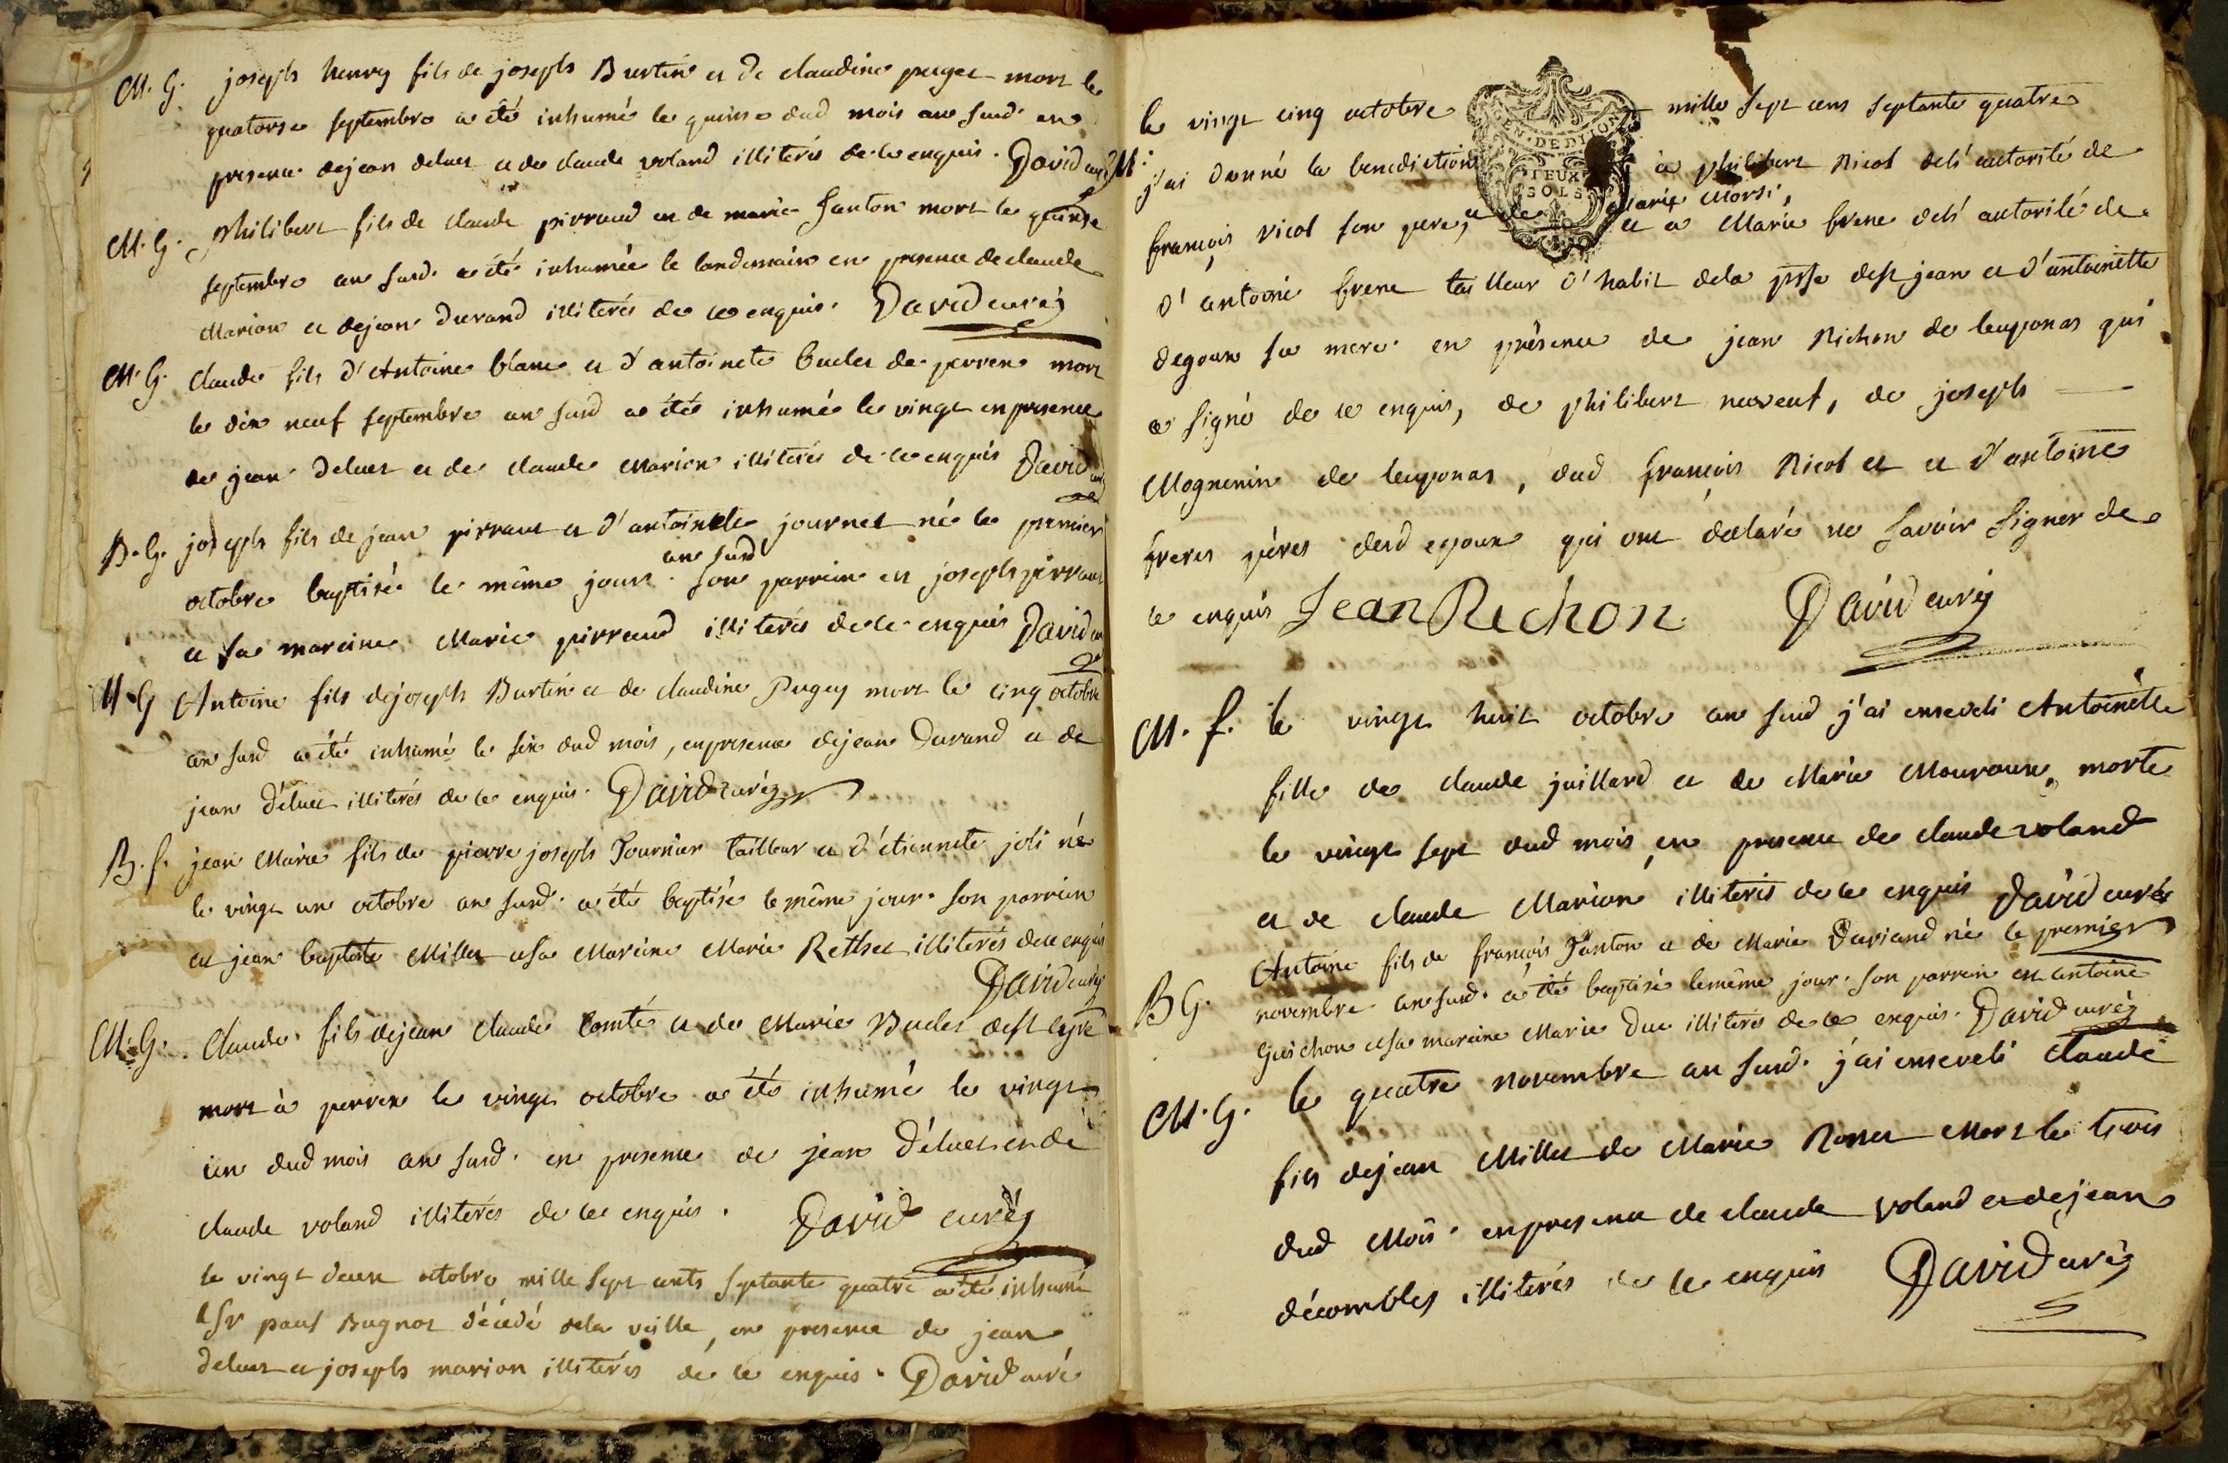 M. G. joseph henry fils de joseph Burtin et de claudine puget mort le
quatorse septembre a été inhumé le quinse dud mois an susd. en
presence dejean deluet et de claude voland illiterés de ce enquis. David curé
M. G. philibert fils de claude pirraud et de marie fanton mort le quinse
septembre an susd. a été inhumée le landemain en presence de claude
Marion et dejean durand illiterés de ce enquis. David curéz
M. G. claude fils d'Antoine blanc et d'antoinete buclet de perrex mort
le dix neuf septembre an susd a été inhumé le vingt en presence
de jean deluet et de claude Marion illiterés de ce enquis David curé
B. G. joseph fils de jean pirraut et d'antoinete journet né le premier
an susd
octobre baptisé le même jour. son parrein est joseph pirraut
et sa mareine Marie pirraud illiterés de ce enquis David curé
M. G Antoine fils dejoseph Burtin et de claudine Pugey mort le cinq octobre
an susd a été inhumé le six dud mois, en presence dejean Durand et de
jean déluet illiterés de ce enquis. David curéz
B. f. jean Marie fils de pierre joseph Fournier tailleur et d'étiennete joli né
le vingt un octobre an susd. a été baptisé le même jour. son parrein
est jean baptiste Millet et sa Mareine Marie Rethet illiterés de ce enquis
David curéz
M. G. Claude fils dejean claude Comté et de Marie Buclet de st Cyre
mort à perrex le vingt octobre a été inhumé le vingt
un dud mois an susd. en presence de jean déluet et de
claude voland illiterés de ce enquis. David curéz
le vingt deux octobre mille sept cents septante quatre a été inhumé
Sr paul Bugnot décédé de la veille, en presence de jean
deluet et joseph marion illiterés de ce enquis. David curé
M.
le vingt cinq octobre mille sept cens septante quatre
GEN. DE DIJON
DEUX
SOLS
j'ai donné la benediction à philibert Nicol de l'autorité de
françois nicol son pere, et de Marie Morsi,
et à Marie frene de l'autorité de
d'antoine frene tailleur d'habit de la psse de st jean et d'antoinette
degoux sa mere en présence de jean Richon de leyponas qui
a signé de ce enquis, de philibert neveut, de joseph
Mognenin de leyponas, dud françois Nicol et et d'antoine
freres péres desd epoux qui ont déclaré ne savoir signer de
ce enquis Jean Richon David curéz
M. f. le vingt huit octobre an susd j'ai enseveli Antoinette
fille de claude juillard et de Marie Mouroux, morte
le vingt sept dud mois, en presence de claude voland
et de claude Marion illiterés de ce enquis David curéz
B G. Antoine fils de françois Fanton et de Marie Duriand né le premier
novembre an susd. a été baptisé le même jour. son parrein est antoine
Guichon et sa mareine Marie Duc illiteres de ce enquis. David curéz
M. G. le quatre novembre an susd. j'ai enseveli claude
fils dejean Millet de Marie Ronet Mort le trois
dud Mois. en presence de claude voland et dejean
décombles illiterés de ce enquis David curéz